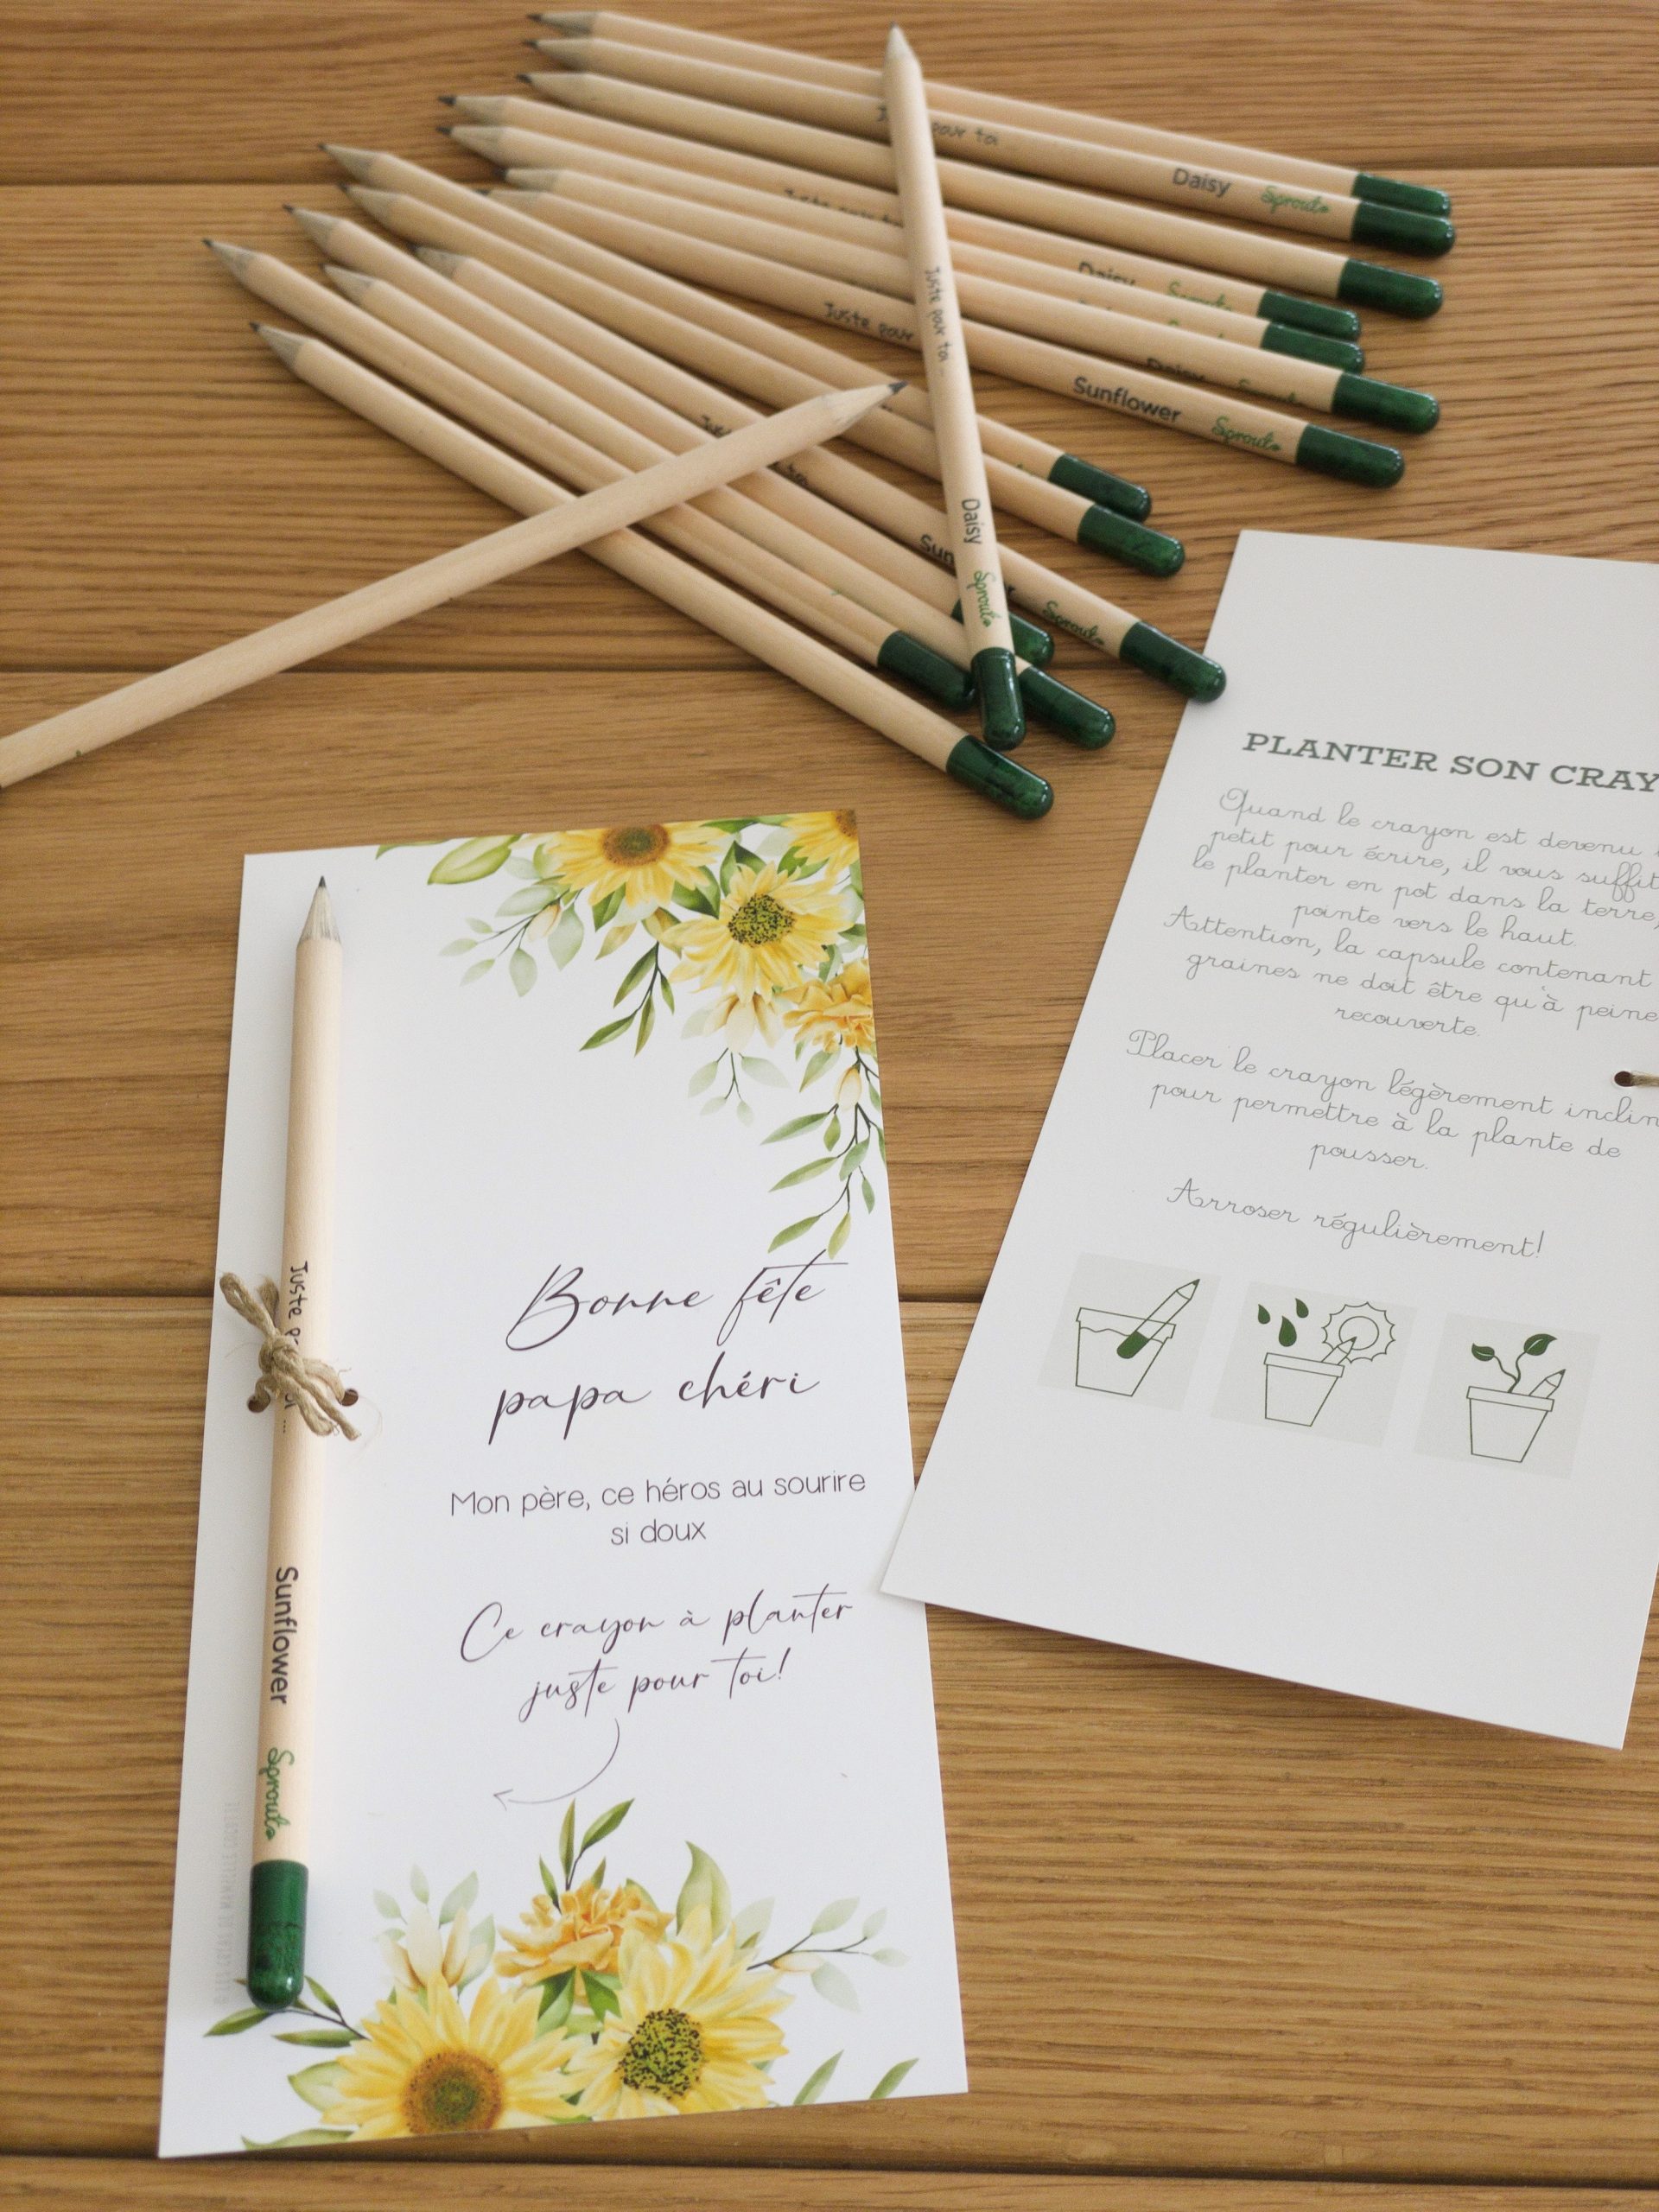 pour toi
Daisy Sprout
Juste pour to
Daisy Sprout
Daisy Sprout
Juste pour
Sunflower Sprout
Juste pour toi...
Daisy Sprout
Sprout
PLANTER SON CRAY
Quand le crayon est devenu
petit pour écrire, il vous suffit
le planter en pot dans la terre,
pointe vers le haut.
Attention, la capsule contenant
graines ne doit être qu'à peine
recouverte.
Placer le crayon légèrement inclin
pour permettre à la plante de
pousser.
Arroser régulièrement!
Juste
Sunflower Sprout
Bonne fête
papa chéri
Mon père, ce héros au sourire
si doux
Ce crayon à planter
juste pour toi!